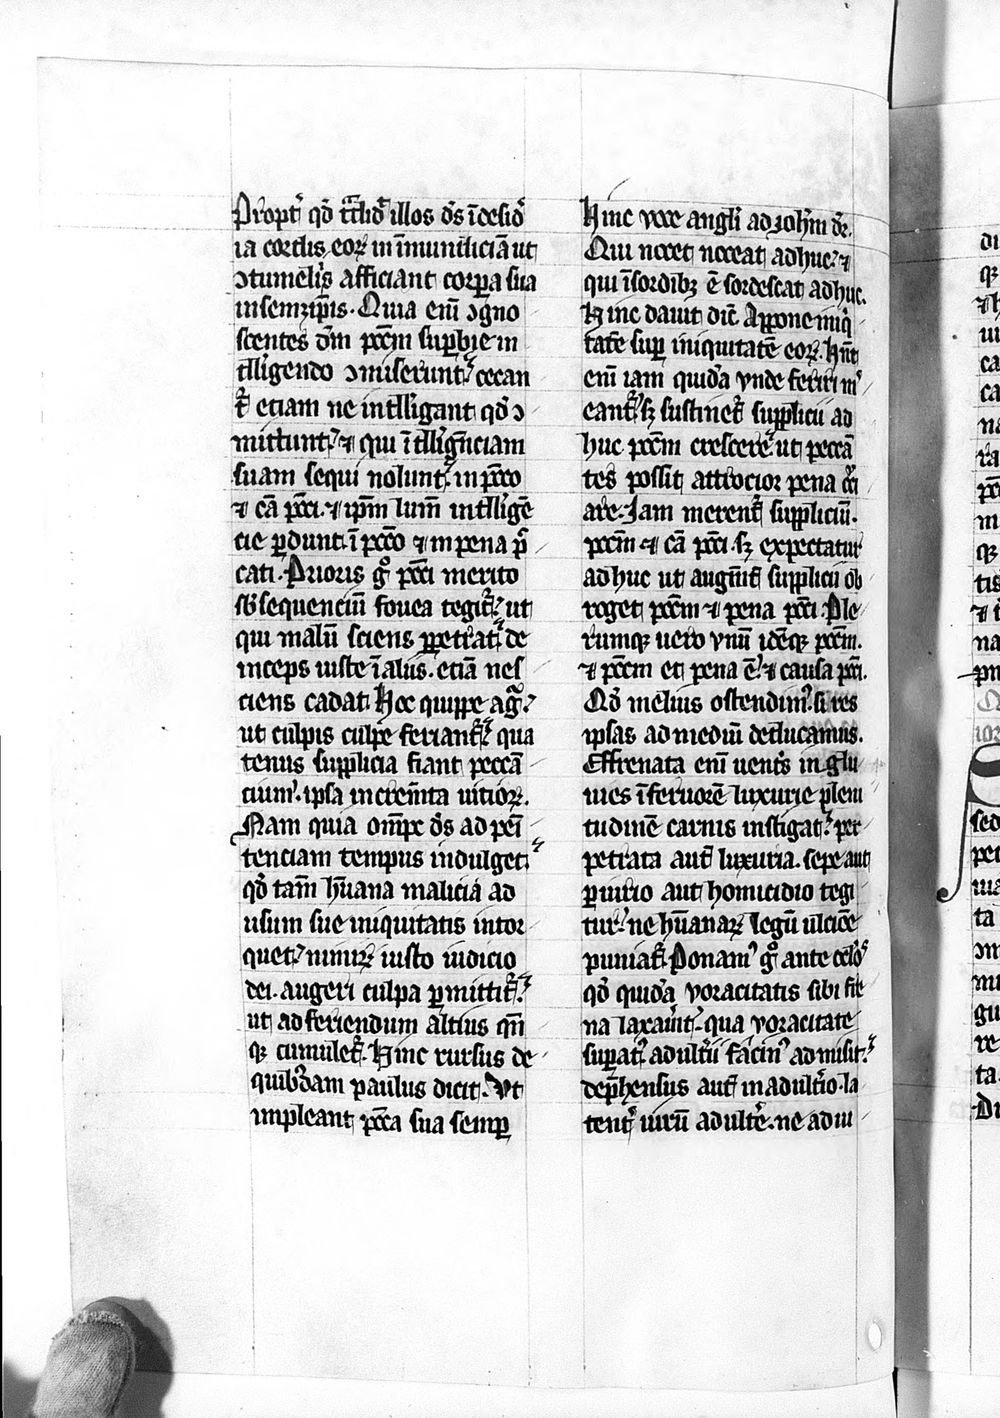 Propt͛ qḋ t͛didͭ illos dꝰs ī desid͛
ia cordis eoꝝ in īmundiciā ut
ↄtumeliis afficiant corpa sua
in semꝫipīs. Quia enī ↄgno
scentes dm̄ pccm̄ supbie in
tlligendo ↄmiserunt cecan
t͛ etiam ne intlligant qḋ ↄ
mittunt ⁊ qui ītlligēciam
suam sequi nolunt in pccō
⁊ cā pcci. ⁊ ipm̄ lum̄ intlligē
cie pdunt. ī pccō ⁊ in pena pͨ
cati. Prioris gͦ pcci merito
sb̄sequenciū fouea tegit͛ ut
qui malū sciens ppetrat de
inceps iuste ī aliis. etiā nes
ciens cadat Hoc quippe ag͛
ut culpis culpe feriant͛ qua
tenus supplicia fiant peccā
cium. ipsa incremͭta uitioꝝ.
Nam quia omp̄s dꝰs ad peī
tenciam tempus indulget
qḋ tam̄ hūana malicia ad
usum sue iniquitatis intor
quet nimiꝝ iusto iudicio
dei. augeri culpa pmittit͛
ut ad feriendum altius qn̄
qꝫ cumulet͛. Hinc rursus de
quibꝰdam paulus dicit. Ut
impleant pccā sua semp
Hinc voce angli ad Johm̄ dr̄.
Qui nocet noceat adhuc ⁊
qui ī sordibꝫ ē sordescat adhuc.
Hinc dauit dic̄ Appone iniq̄
tatē sup iniquitatē eoꝝ. Hn̄t
enī iam quidā vnde feriri m͛
eant͛ sꝫ sustinet͛ supplicii ad
huc pccm̄ crescere ut peccā
tes possit attrocior pena c͛i
are. Jam merent͛ suppliciū.
pccm̄ ⁊ cā pcci. sꝫ expectatur
adhuc ut augm̄t͛ supplicii ob
roget pccm̄ ⁊ pena pcci. Ple
rumqꝫ uero vnū idēqꝫ pccm̄.
⁊ pccm̄ et pena ē ⁊ causa pcci.
Qḋ melius ostendim͛ si res
ipsas ad mediū deducamus.
Effrenata enī uentͥs in glu
uies ī feruorē luxurie pleni
tudinē carnis instigat per
petrata aut̄ luxuria. sepe aut
piurio aut homicidio tegi
tur ne hūanaꝝ legū ulcione
puniat͛. Ponamꝰ gͦ ante oclōs
qḋ quidā voracitatis sibi fre
na laxauit. qua voracitate
supatꝰ adultͥii facinꝰ admisit
dephensus aut̄ in adultͥio. la
tentͥ uirū adultͥe. ne ad iu